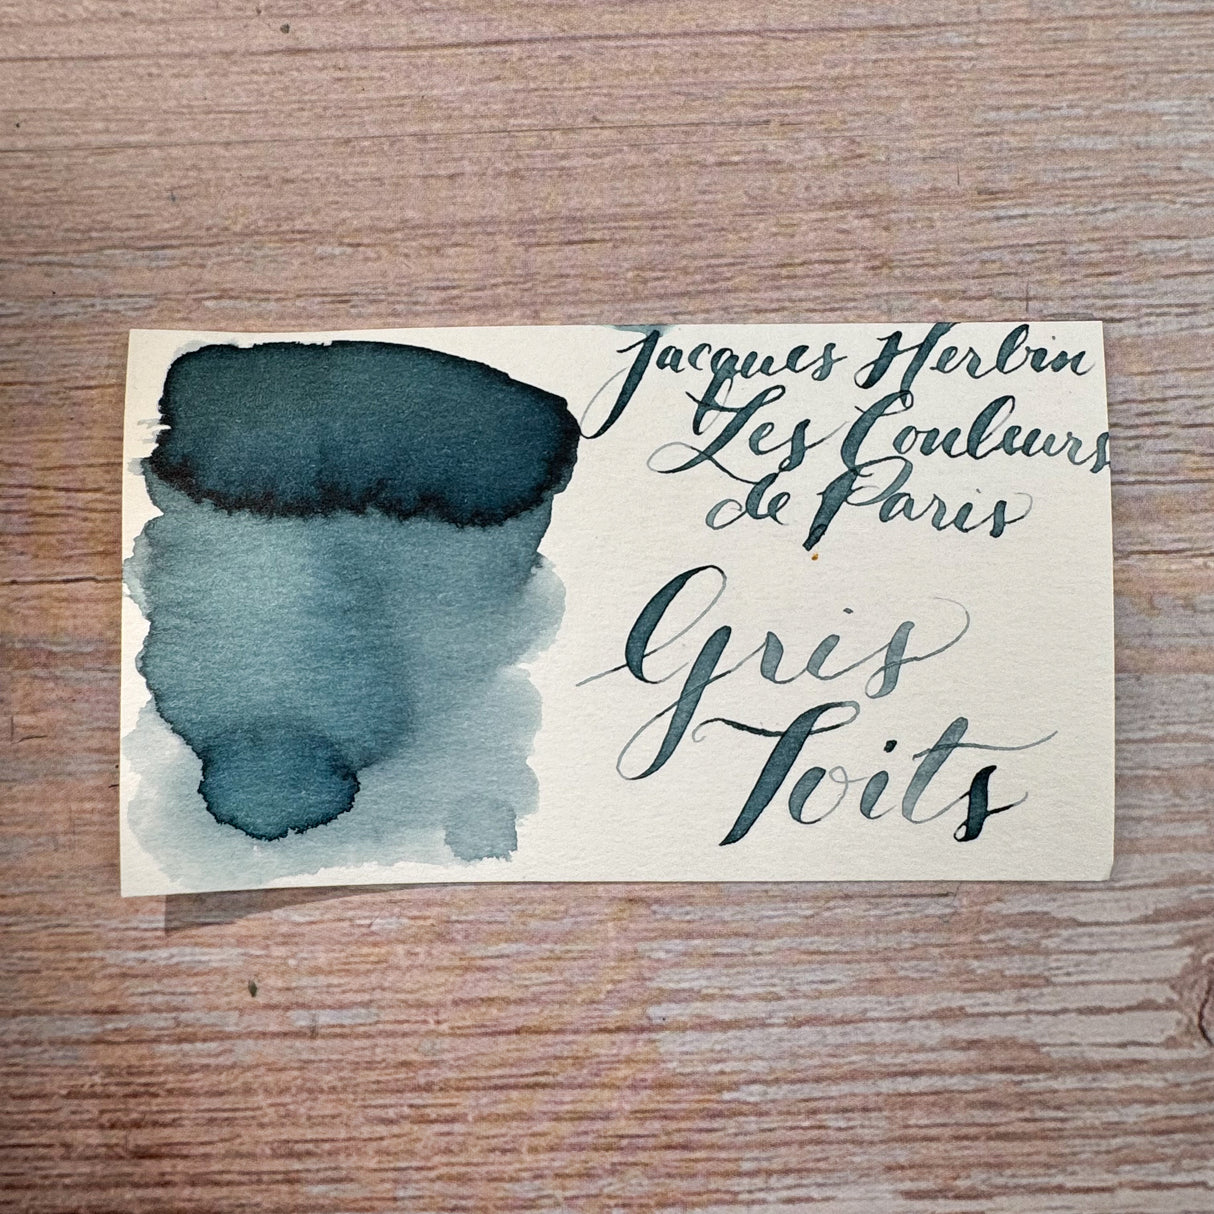 Jacques Herbin
Les Couleurs
de Paris
Gris
Toits